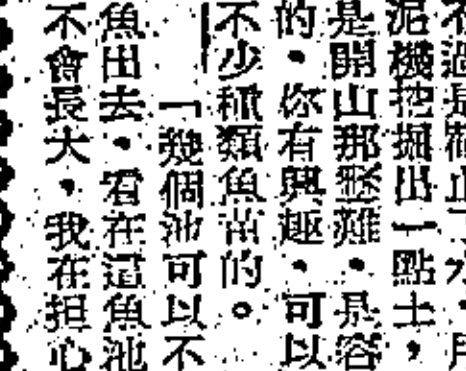 泥機挖掘出一點土，
是開山那麽難。是容
的。你有興趣。可以
不少種類魚苗的。
「幾個池可以不
魚出去。看在這魚池
不會長大。我在担心